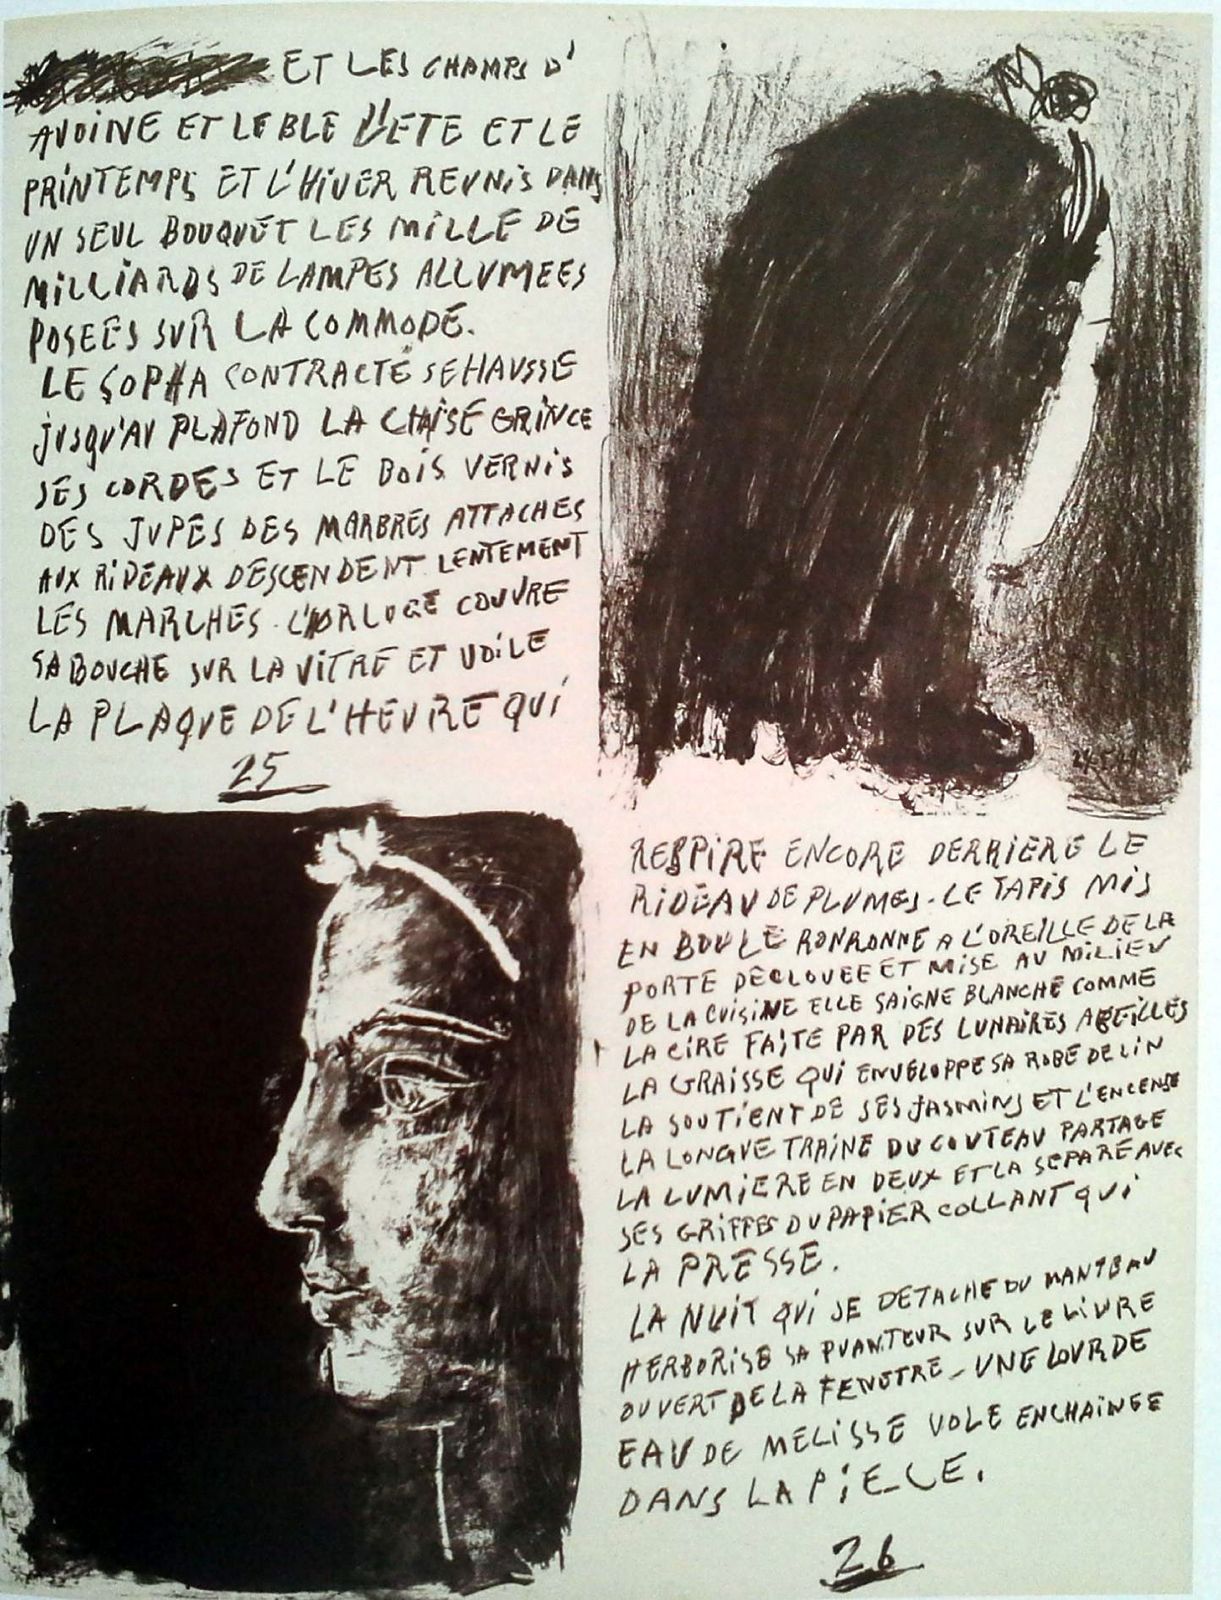 ET LES CHAMPS D'
AVOINE ET LE BLE L'ETE ET LE
PRINTEMPS ET L'HIVER REUNIS DANS
UN SEUL BOUQUET LES MILLE DE
MILLIARDS DE LAMPES ALLUMEES
POSEES SUR LA COMMODE.
LE SOPHA CONTRACTÉ SE HAUSSE
JUSQU'AU PLAFOND LA CHAISE GRINCE
SES CORDES ET LE BOIS VERNIS
DES JUPES DES MARBRES ATTACHES
AUX RIDEAUX DESCENDENT LENTEMENT
LES MARCHES. L'ORLOGE COUVRE
SA BOUCHE SUR LA VITRE ET VOILE
LA PLAQUE DE L'HEURE QUI
25
RESPIRE ENCORE DERRIERE LE
RIDEAU DE PLUMES. LE TAPIS MIS
EN BOULE RONRONNE A L'OREILLE DE LA
PORTE DECLOUEE ET MISE AU MILIEU
DE LA CUISINE ELLE SAIGNE BLANCHE COMME
LA CIRE FAITE PAR DES LUNAIRES ABEILLES
LA GRAISSE QUI ENVELOPPE SA ROBE DE LIN
LA SOUTIENT DE SES JASMINS ET L'ENCENSE
LA LONGUE TRAINE DU COUTEAU PARTAGE
LA LUMIERE EN DEUX ET LA SEPARE AVEC
SES GRIFFES DU PAPIER COLLANT QUI
LA PRESSE.
LA NUIT QUI SE DETACHE DU MANTEAU
HERBORISE SA PUANTEUR SUR LE LIVRE
OUVERT DE LA FENETRE - UNE LOURDE
EAU DE MELISSE VOLE ENCHAINEE
DANS LA PIECE.
26